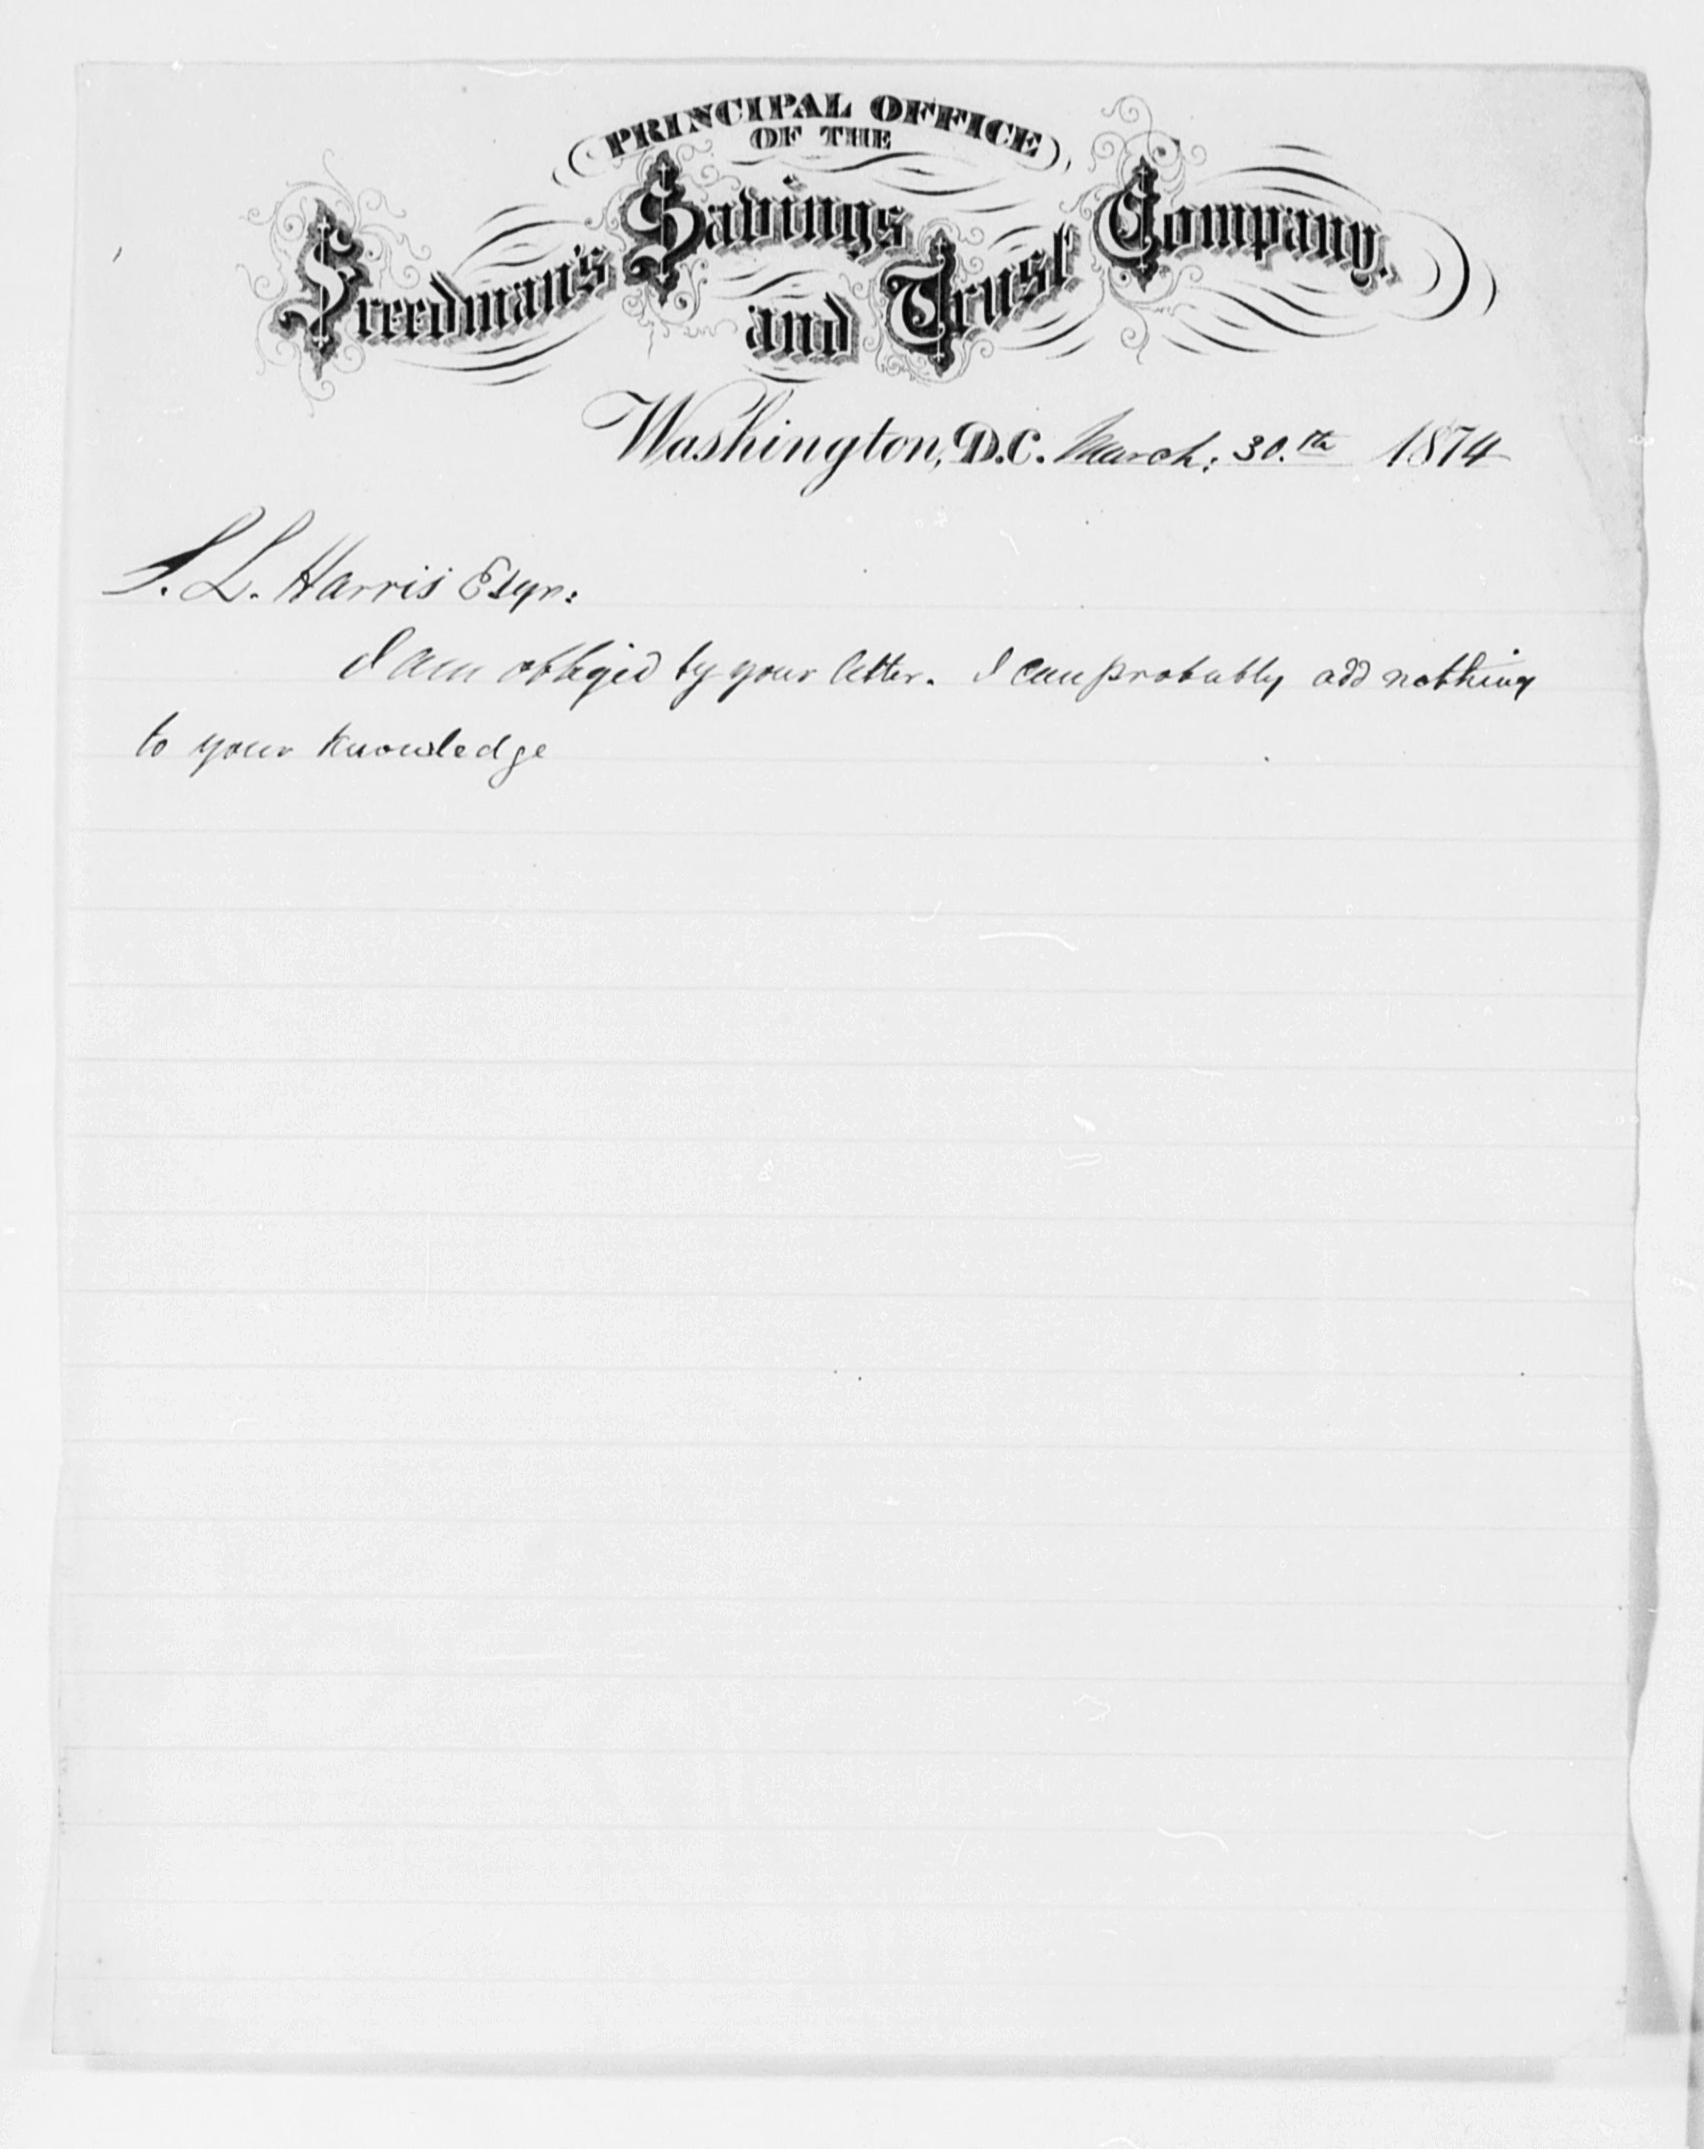 PRINCIPAL OFFICE
OF THE
Freedman's Savings and Trust Company.
Washington, D.C. March, 30.th 1874
S. L. Harris Esqr:
I am obliged by your letter. I can probably add nothing
to your knowledge